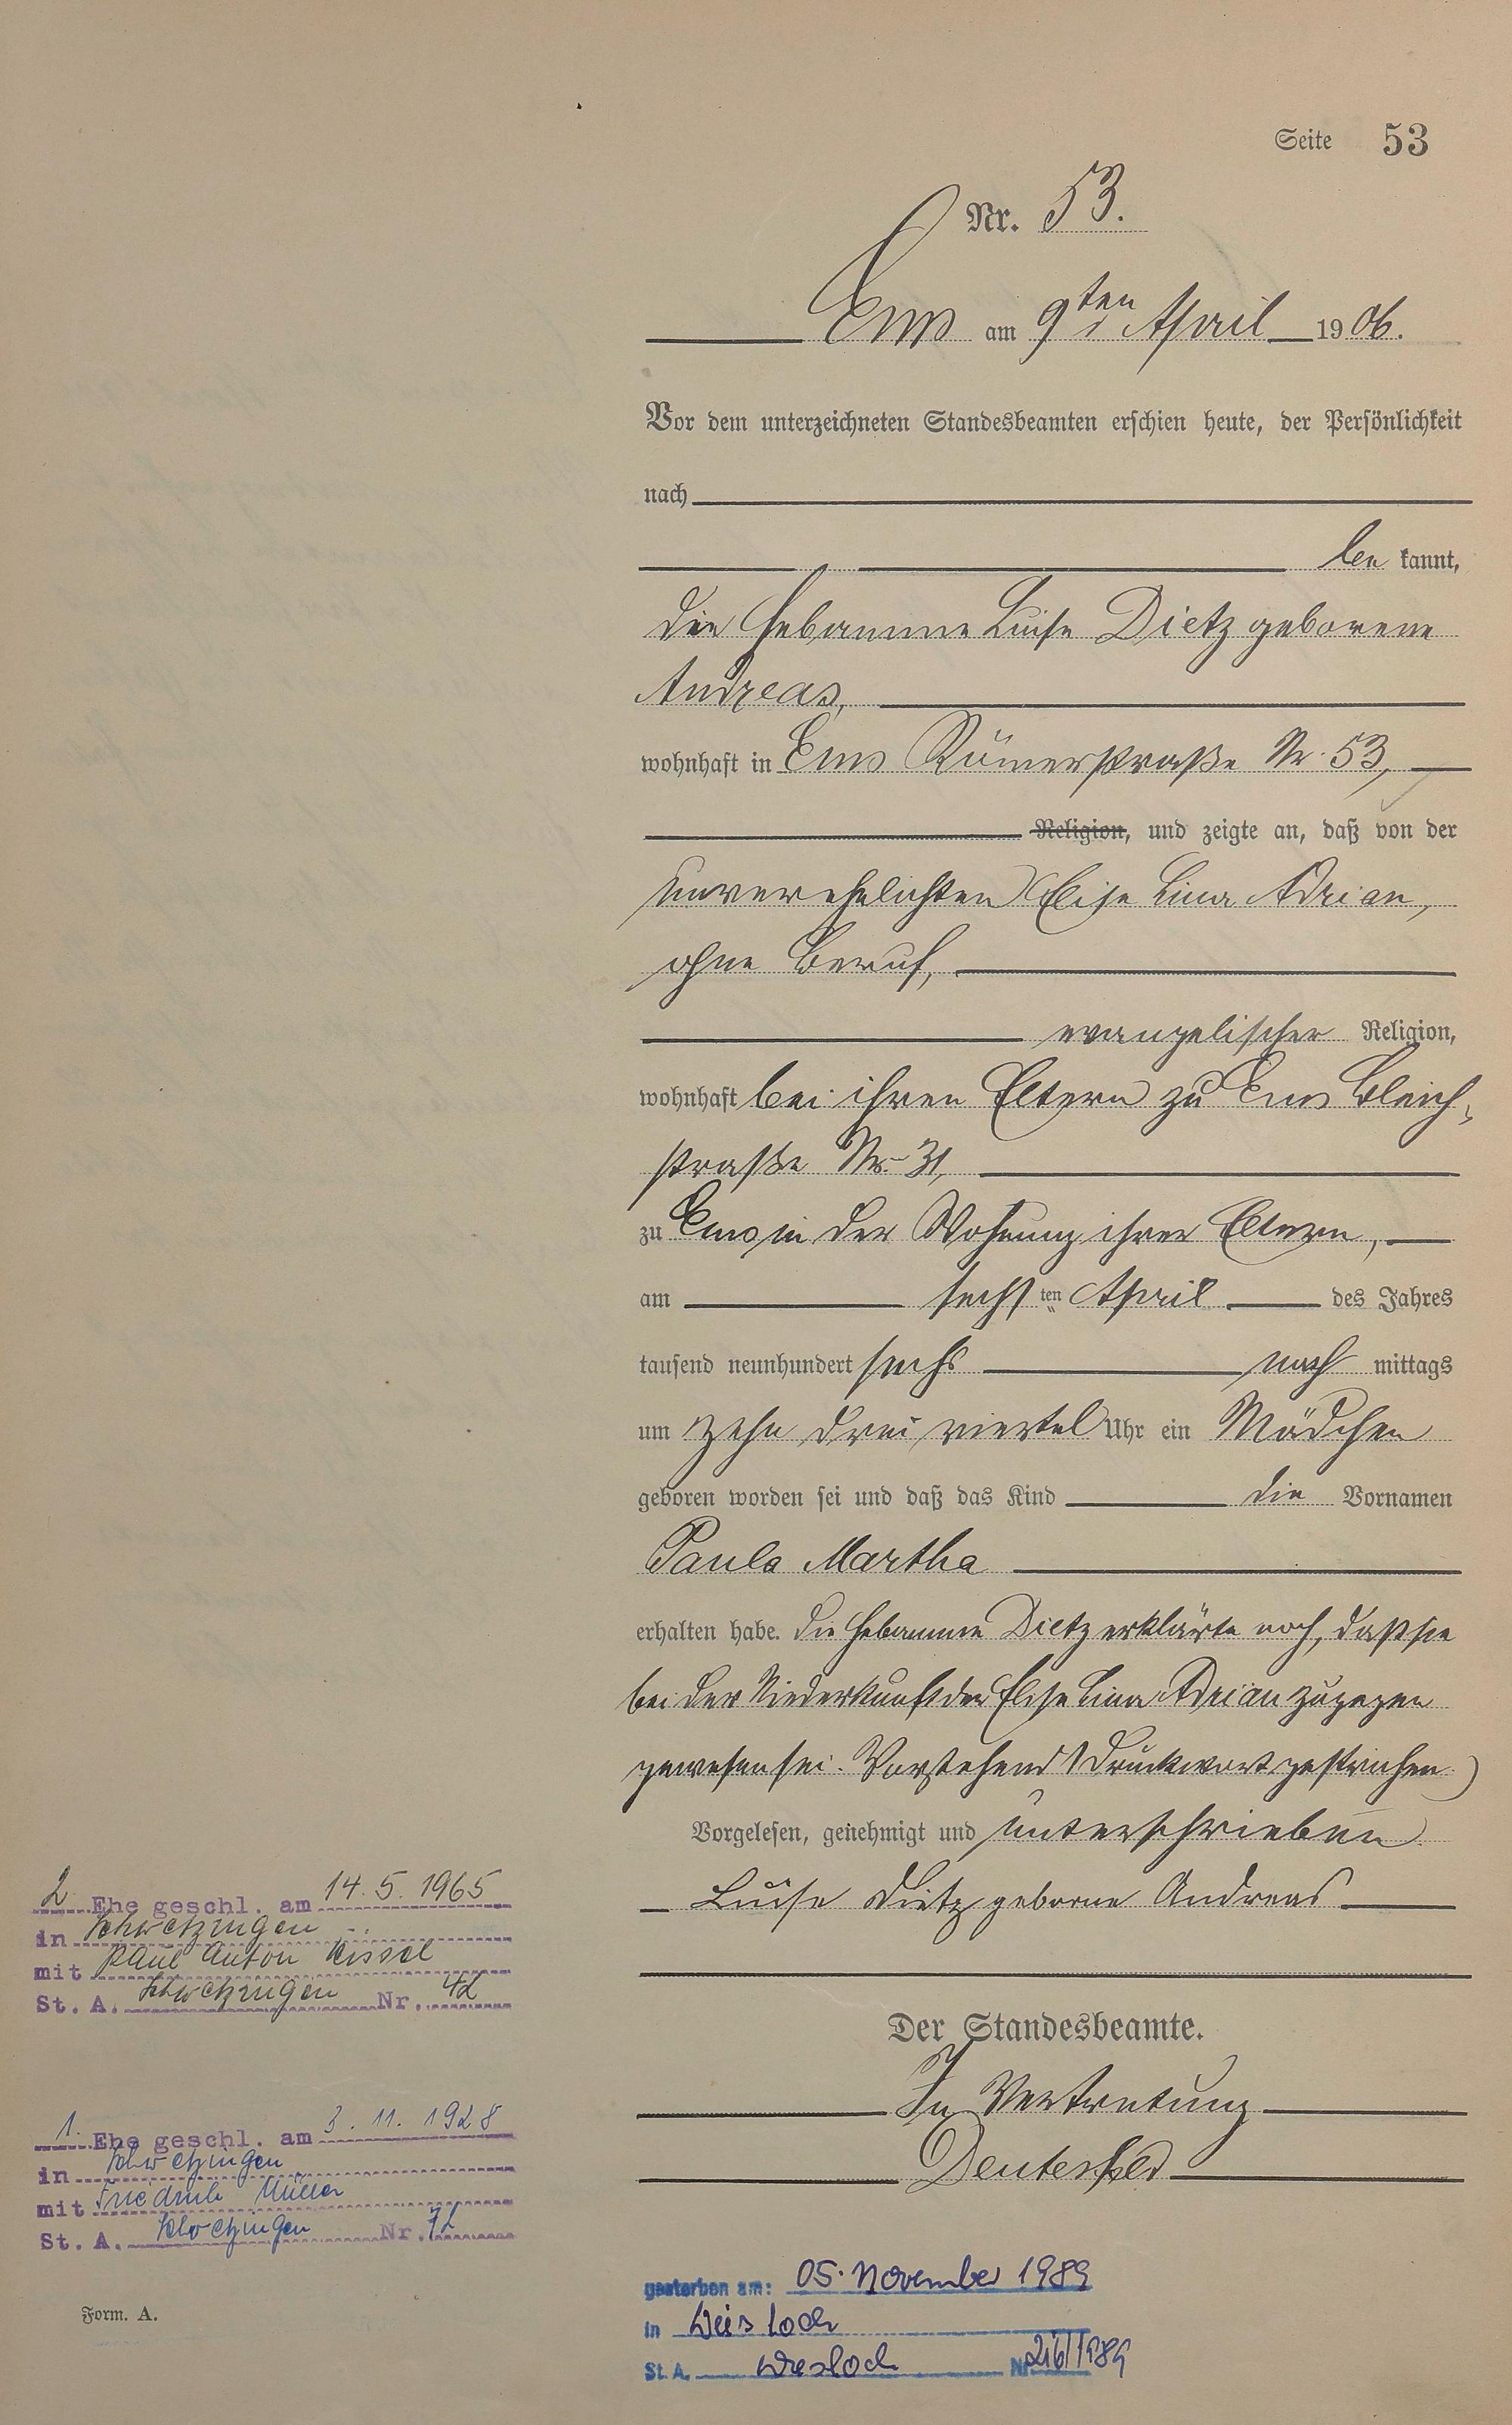 Seite 53
Nr. 53.
Ems am 9ten April 1906.
Vor dem unterzeichneten Standesbeamten erschien heute, der Persönlichkeit
nach
be kannt,
die Hebamme Luise Dietz geborene
Andreas,
wohnhaft in Ems Römerstraße Nr. 53,
Religion, und zeigte an, daß von der
unverehelichten Elise Lina Adrian,
ohne Beruf,
evangelischer Religion,
wohnhaft bei ihren Eltern zu Ems Bleich-
straße Nr. 31,
zu Ems in der Wohnung ihrer Eltern,
am sechs ten April des Jahres
tausend neunhundert sechs nach mittags
um zehn drei viertel Uhr ein Mädchen
geboren worden sei und daß das Kind die Vornamen
Paula Martha
erhalten habe. Die Hebamme Dietz erklärte noch, daß sie
bei der Niederkunft der Elise Lina Adrian zugegen
gewesen sei. Vorstehend 1 Druckwort gestrichen.
Vorgelesen, genehmigt und unterschrieben
Luise Dietz geborne Andreas
Der Standesbeamte.
In Vertretung
2. Ehe geschl. am 14.5.1965
in Schwetzingen
mit Paul Anton Kissel
St. A. Schwetzingen Nr. 42
1. Ehe geschl. am 3.11.1928
in Schwetzingen
mit Friedrich Müller
St. A. Schwetzingen Nr. 72
Form. A.
gestorben am: 05. November 1989
in Wiesloch
St. A. Wiesloch Nr. 216/1989